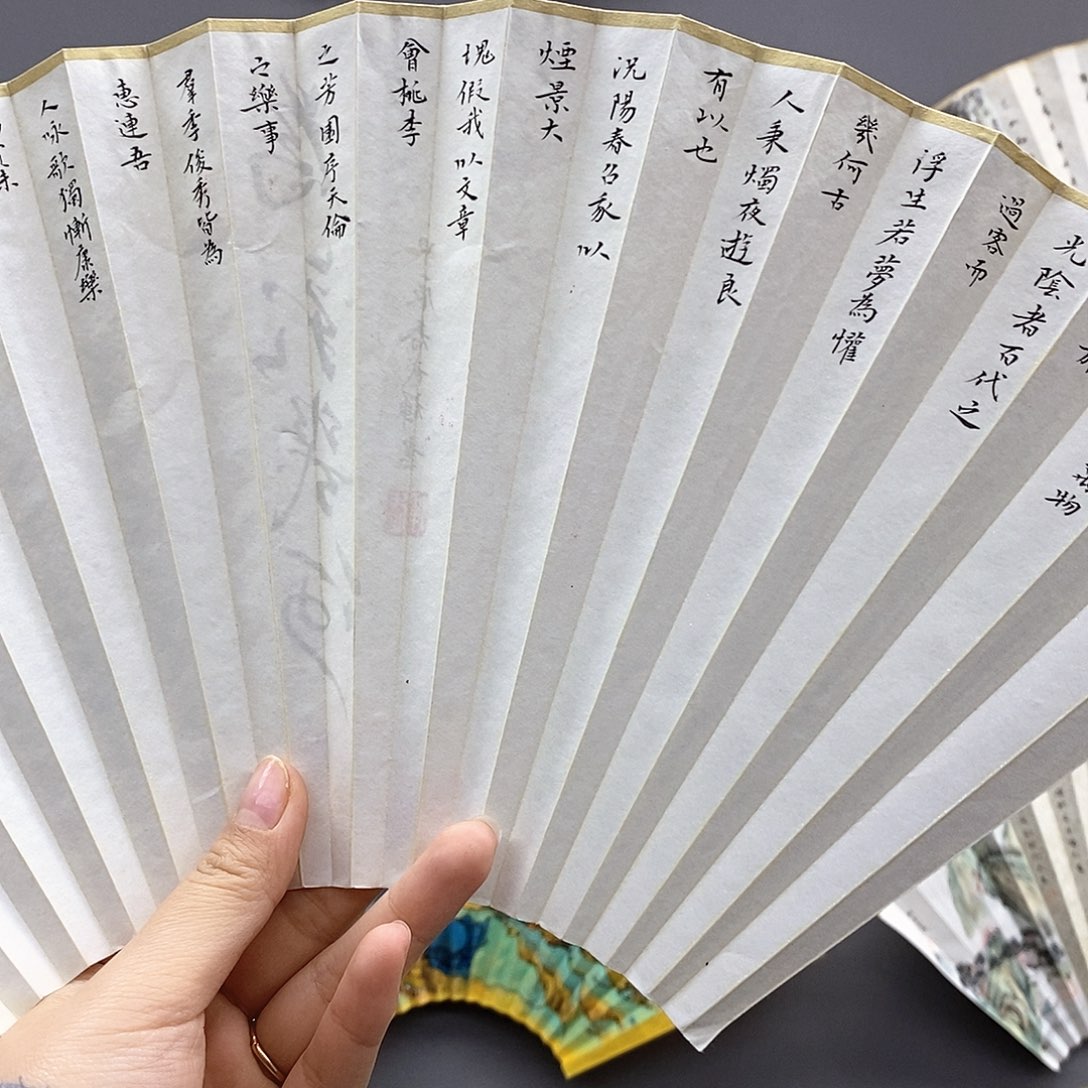 物
光陰者百代之
過客而
浮生若夢為懽
幾何古
人秉燭夜遊良
有以也
況陽春召我以
煙景大
塊假我以文章
會桃李
之芳園序天倫
之樂事
羣季俊秀皆為
惠連吾
人咏歌獨慚康樂
未